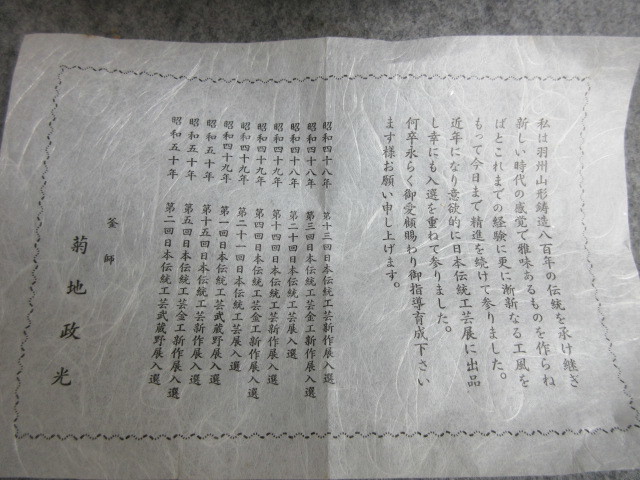 私は羽州山形鋳造八百年の伝統を承け継ぎ
新しい時代の感覚で雅味あるものを作らね
ばとこれまでの経験に更に漸新なる工風を
もって今日まで精進を続けて参りました。
近年になり意欲的に日本伝統工芸展に出品
し幸にも入選を重ねて参りました。
何卒永らく御愛顧賜わり御指導育成下さい
ます様お願い申し上げます。
昭和四十八年 第十三回日本伝統工芸新作展入選
昭和四十八年 第三回日本伝統工芸金工新作展入選
昭和四十八年 第二十回日本伝統工芸展入選
昭和四十九年 第十四回日本伝統工芸新作展入選
昭和四十九年 第四回日本伝統工芸金工新作展入選
昭和四十九年 第二十一回日本伝統工芸展入選
昭和四十九年 第一回日本伝統工芸武蔵野展入選
昭和五十年 第十五回日本伝統工芸新作展入選
昭和五十年 第五回日本伝統工芸金工新作展入選
昭和五十年 第二回日本伝統工芸武蔵野展入選
釜師
菊地政光